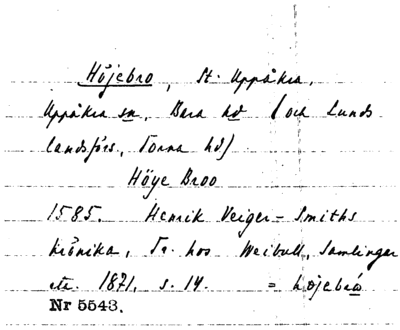 Höjebro, St. Uppåkra,
Uppåkra sn, Bara hd (och Lunds
landsförs., Torna hd)
Höye Broo
1585. Henrik Veiger-Smiths
krönika, Tr. hos Weibull, Samlinger
etc. 1871, s. 14. = höjebro
Nr 5543.